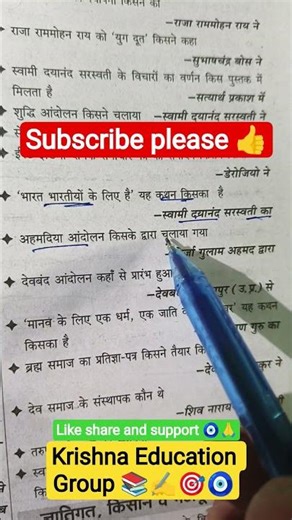 –राजा राममोहन राय ने
राजा राममोहन राय को 'युग दूत' किसने कहा
–सुभाषचंद्र बोस ने
स्वामी दयानंद सरस्वती के विचारों का वर्णन किस पुस्तक में
मिलता है
–सत्यार्थ प्रकाश में
शुद्धि आंदोलन किसने चलाया –स्वामी दयानंद सरस्वती ने
Subscribe please 👍
–डेरोजियो ने
'भारत भारतीयों के लिए है' यह कथन किसका है
–स्वामी दयानंद सरस्वती का
अहमदिया आंदोलन किसके द्वारा चलाया गया
गुलाम अहमद द्वारा
देवबंद आंदोलन कहाँ से प्रारंभ हुआ
(उ.प्र.) से
'मानव के लिए एक धर्म, एक जाति यह कथन
किसका है गुरु का
ब्रह्म समाज का प्रतिज्ञा-पत्र किसने तैयार
ने
देव समाज के संस्थापक कौन थे
Like share and support 🧿🙏
–शिव नारायण
Krishna Education
Group 📚✍️🎯🧿